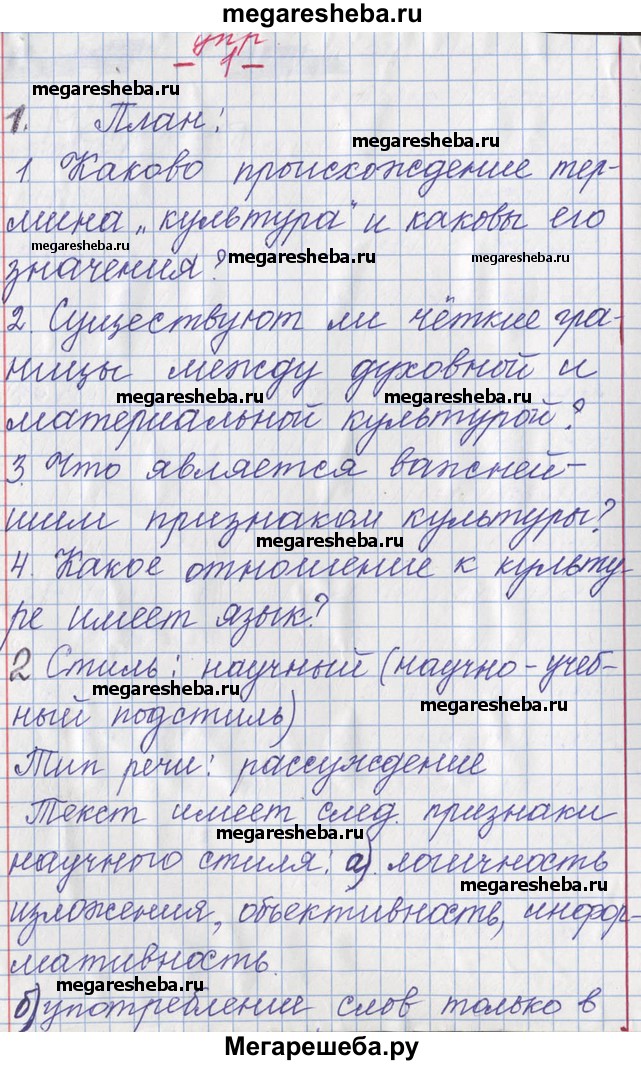 megaresheba.ru
упр
1
megaresheba.ru
1. План:
megaresheba.ru
1 Каково происхождение тер-
мина „культура" и каковы его
megaresheba.ru megaresheba.ru megaresheba.ru
значения?
2. Существуют ли чёткие гра-
ницы между духовной и
megaresheba.ru megaresheba.ru
материальной культурой?
3. Что является важней-
шим признаком культуры?
megaresheba.ru
4. Какое отношение к культу
ре имеет язык?
2 Стиль: научный (научно-учеб-
megaresheba.ru megaresheba.ru
ный подстиль)
Тип речи: рассуждение
Текст имеет след. признаки
megaresheba.ru
научного стиля: а) логичность
megaresheba.ru
изложения, объективность, инфор-
мативность.
megaresheba.ru
б) употреблении слов только в
Мегарешеба.ру